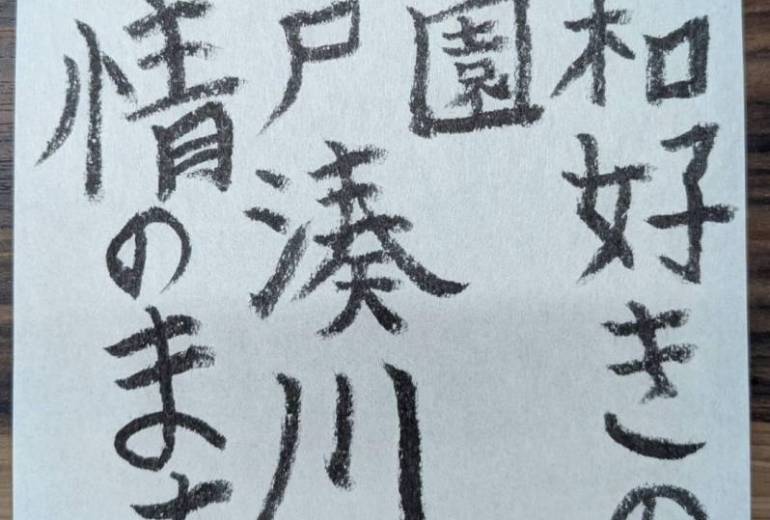 和好きの
園
戸湊川
情のま